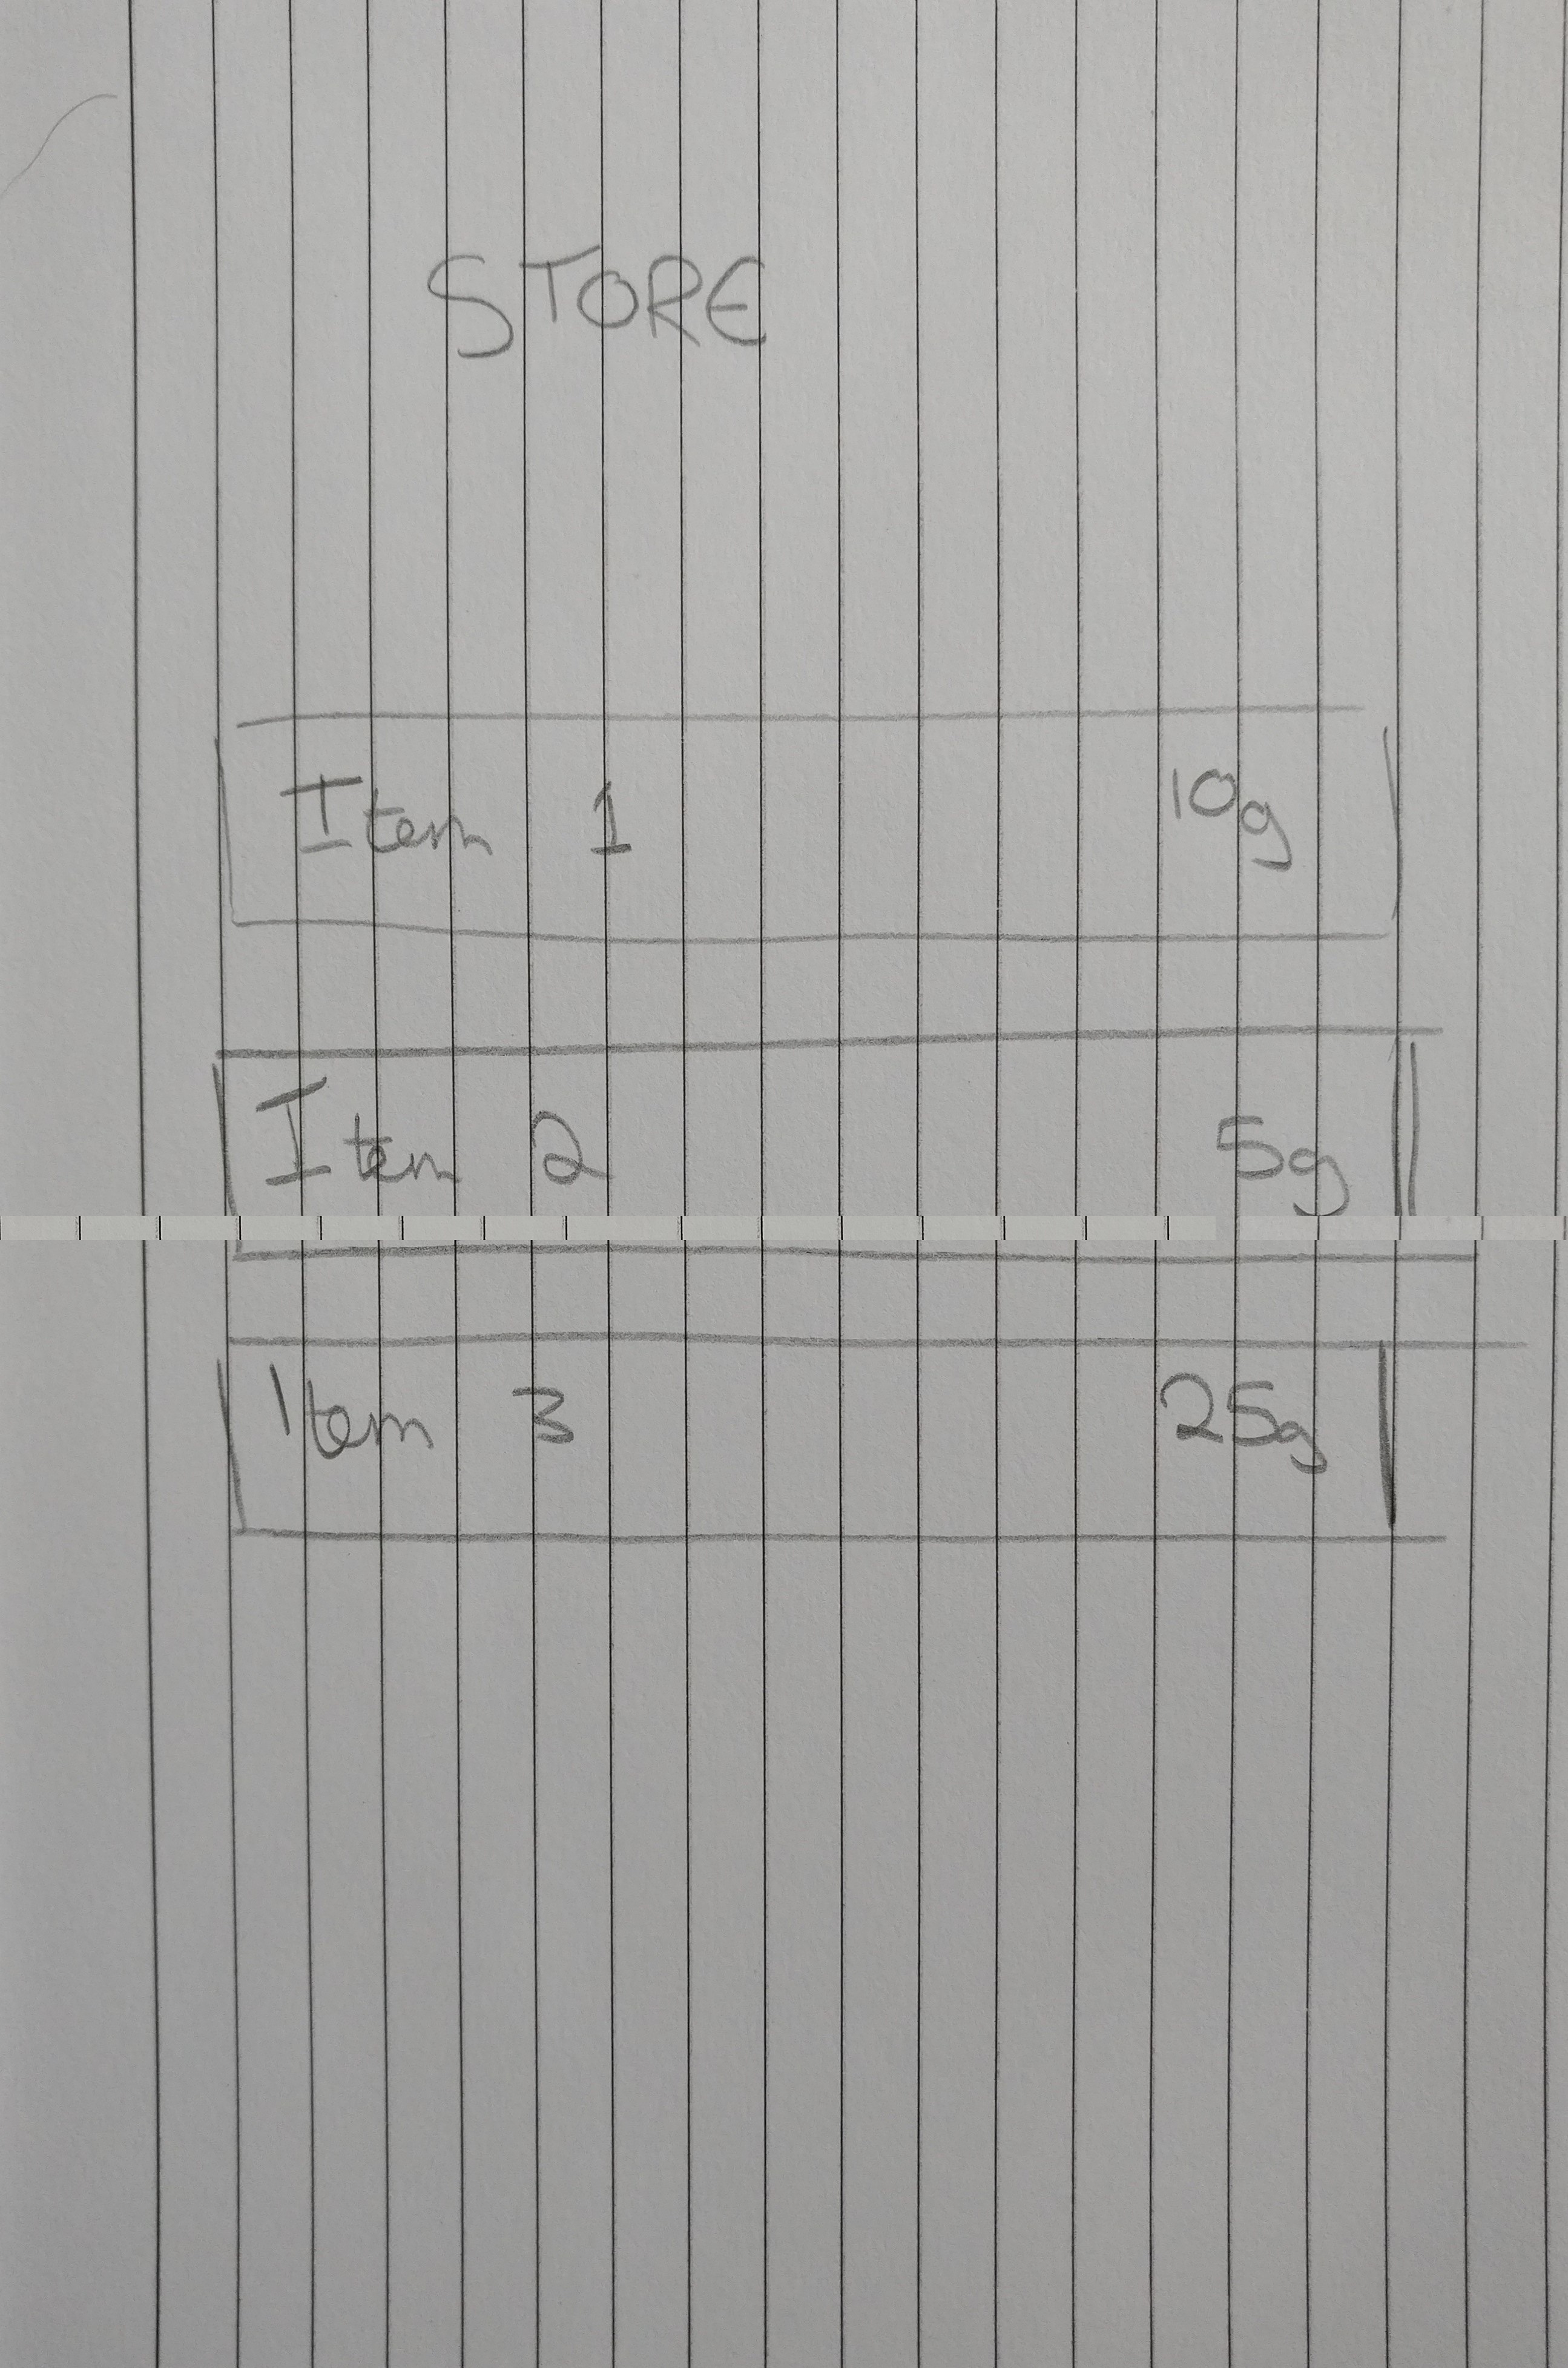 STORE
Item 1 10g
Item 2 5g
Item 3 25g